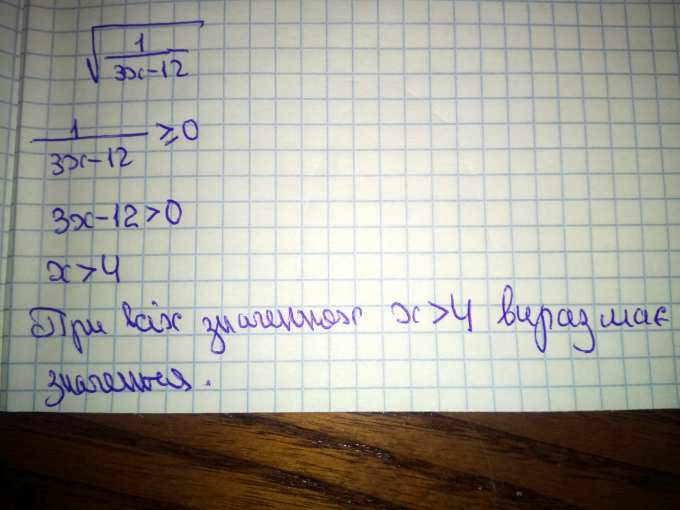 √(1/(3x-12))
1/(3x-12) ≥ 0
3x-12>0
x>4
При всіх значеннях x>4 вираз має
значення.